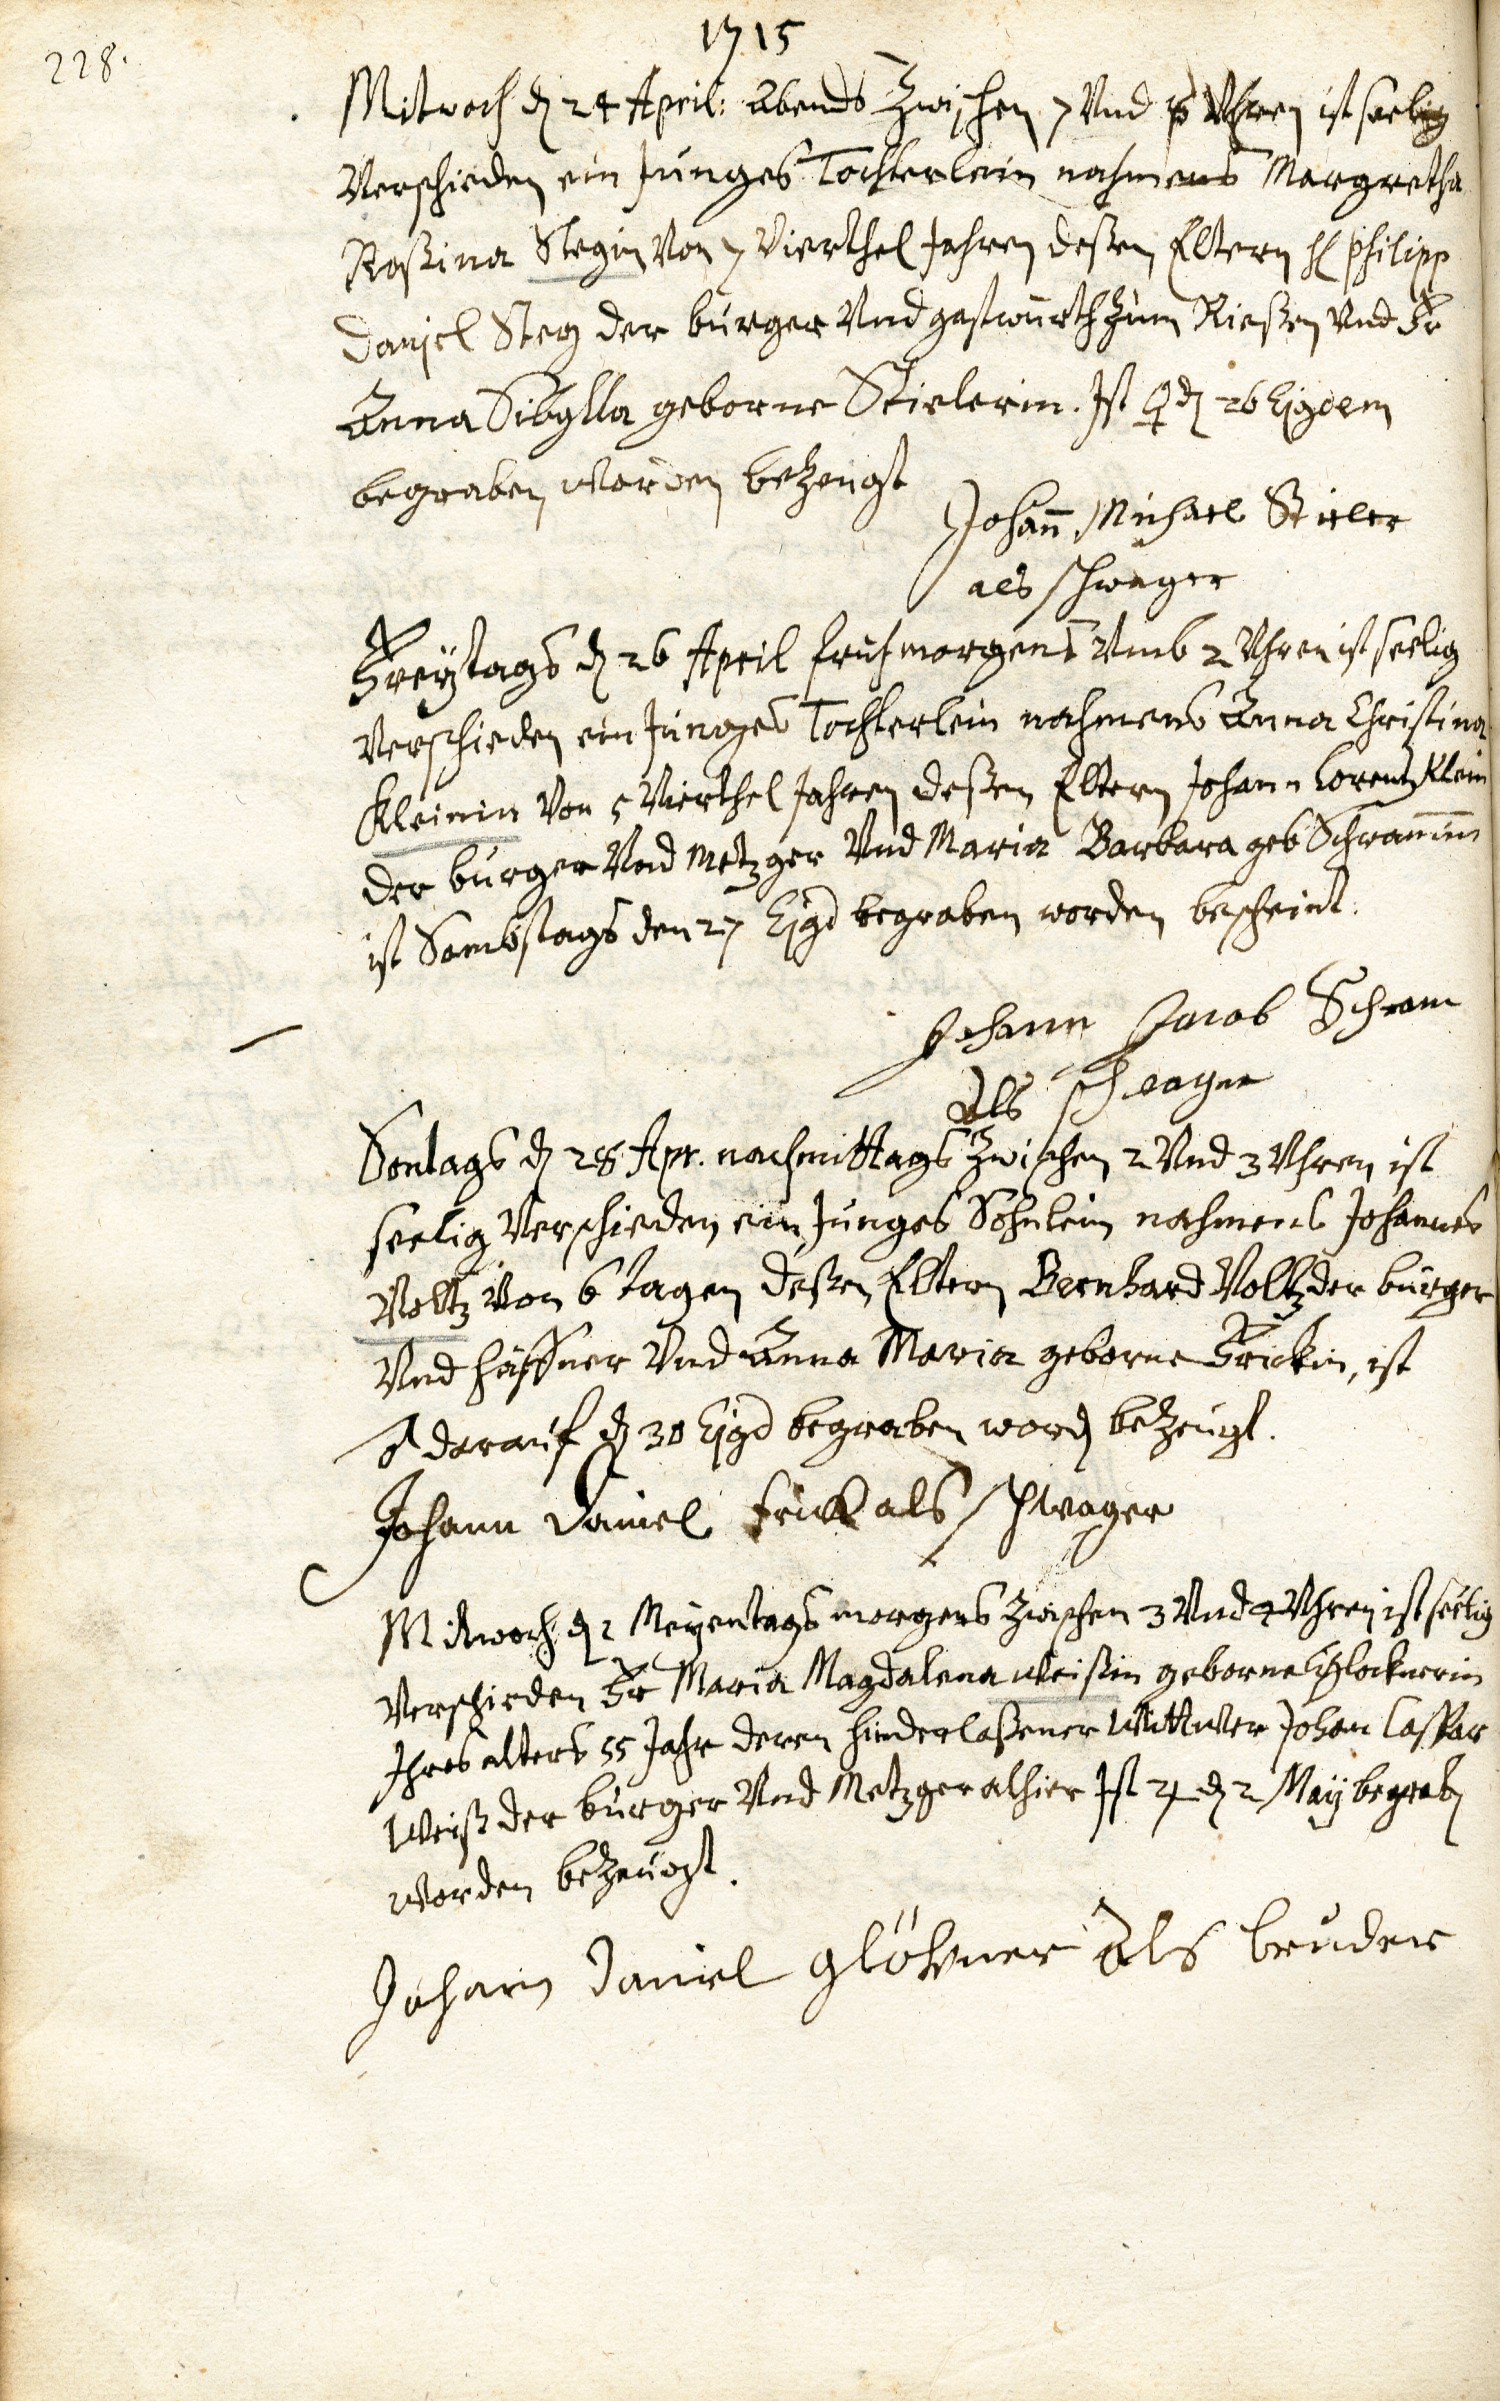 1715
228.
Mitwoch d 24 April: Abends Zwischen 7 Vnd 8 Vhren ist seelig
Verschieden ein Junges Töchterlein nahmens Margretha
Roßina Stegin Von 7 Vierthel Jahren deßen Eltern H Philipp
Daniel Steg der burger Vnd gastwürth Zum Rießen Vnd Fr
Anna Sibylla geborne Stielerin. Ist ♀ d 26 Ejgdem
begraben worden beZeugt
Johann Michael Stieler
als schwager
Freytags d 26 April fruhmorgens Vmb 2 Vhren ist seelig
Verschieden ein Junges Töchterlein nahmens Anna Christina
Kleinin Von 5 Vierthel Jahren deßen Eltern Johann Lorentz Klein
der burger Vnd Metzger Vnd Maria Barbara geb Schrammin
ist Sambstags den 27 Ejgd begraben worden bescheint.
Johann Jacob Schram
Als schwager
Sontags d 28 Apr. nachmittags Zwischen 2 Vnd 3 Vhren ist
seelig Verschieden ein Junges Söhnlein nahmens Johannes
Voltz Von 6 tagen deßen Eltern Bernhard Voltz der burger
Vnd haffner Vnd Anna Maria geborne Frickin, ist
♂ darauf d 30 Ejgd begraben word beZeugt.
Johann Daniel Frick als schwager
Mitwoch d 1 Meyentags morgens Zwischen 3 Vnd 4 Vhren ist seelig
Verschieden Fr Maria Magdalena Weißin geborne Glocknerin
Ihres alters 55 Jahr deren hinderlaßener Wittwer Johan Caspar
Weiß der burger Vnd Metzger alhier Ist ♃ d 2 May begrab
worden beZeugt.
Johann Daniel glöckner Als bruder